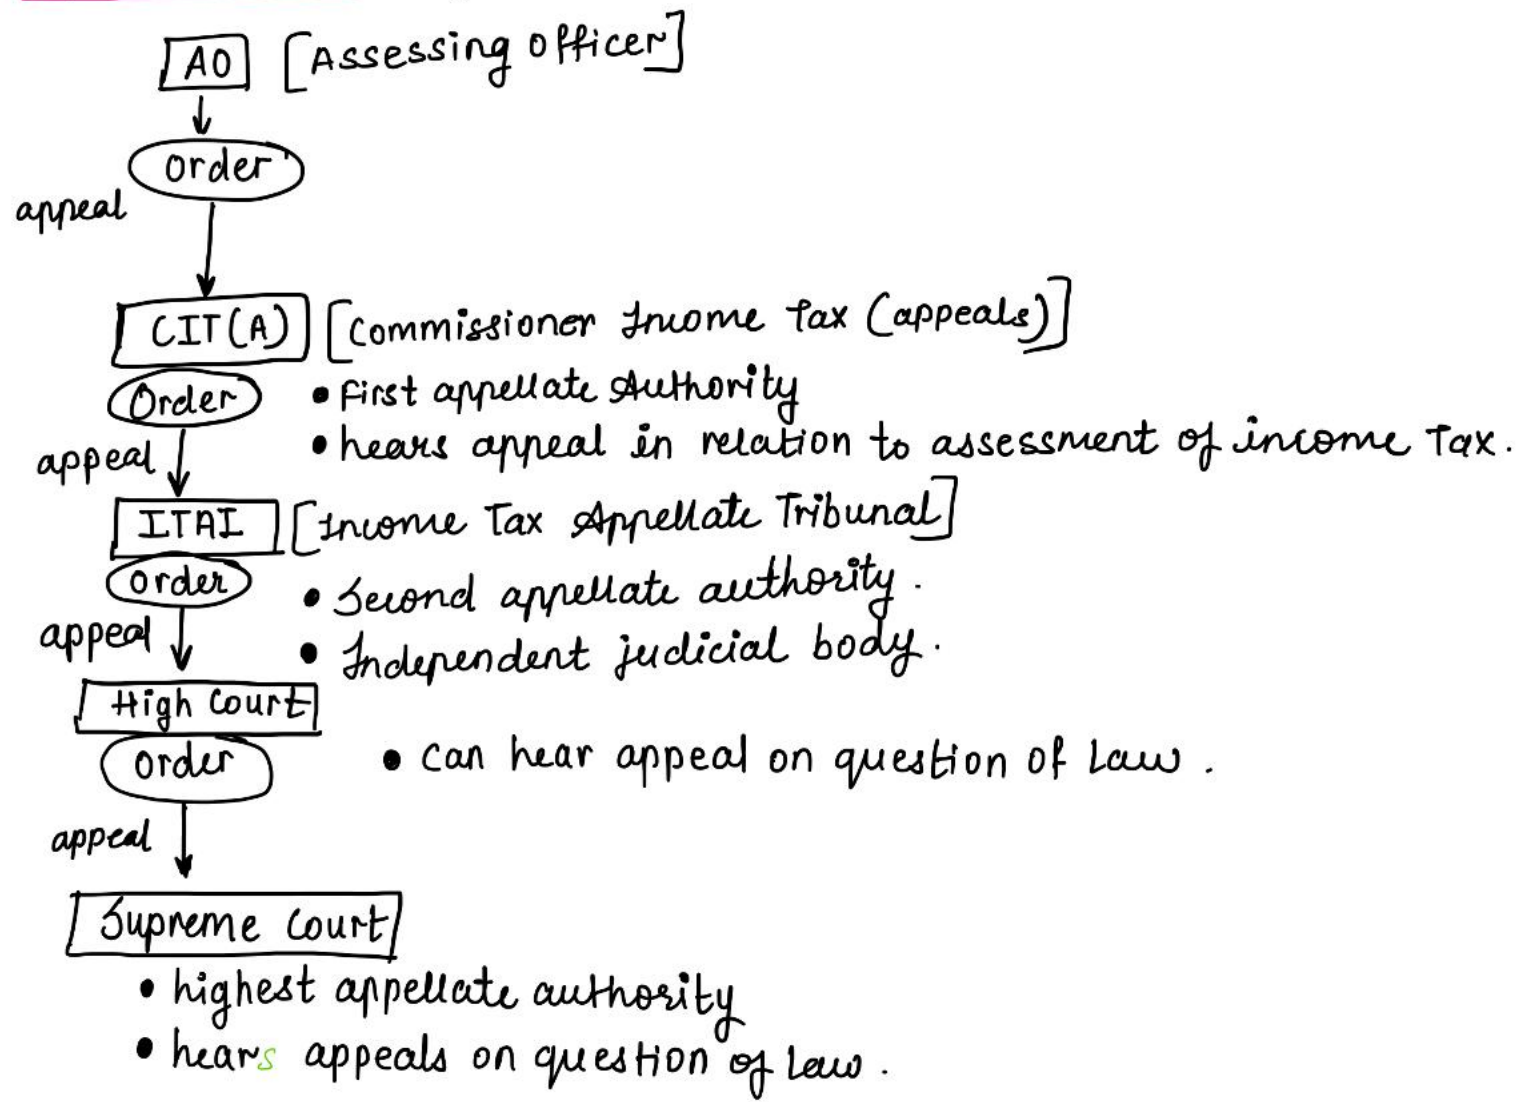 AO [Assessing officer]
order
appeal
CIT(A) [Commissioner Income Tax (appeals)]
Order • First appellate Authority
appeal • hears appeal in relation to assessment of income Tax.
ITAI [Income Tax Appellate Tribunal]
order • Second appellate authority.
appeal • Independent judicial body.
High Court
order • can hear appeal on question of Law.
appeal
Supreme Court
• highest appellate authority
• hears appeals on question of Law.